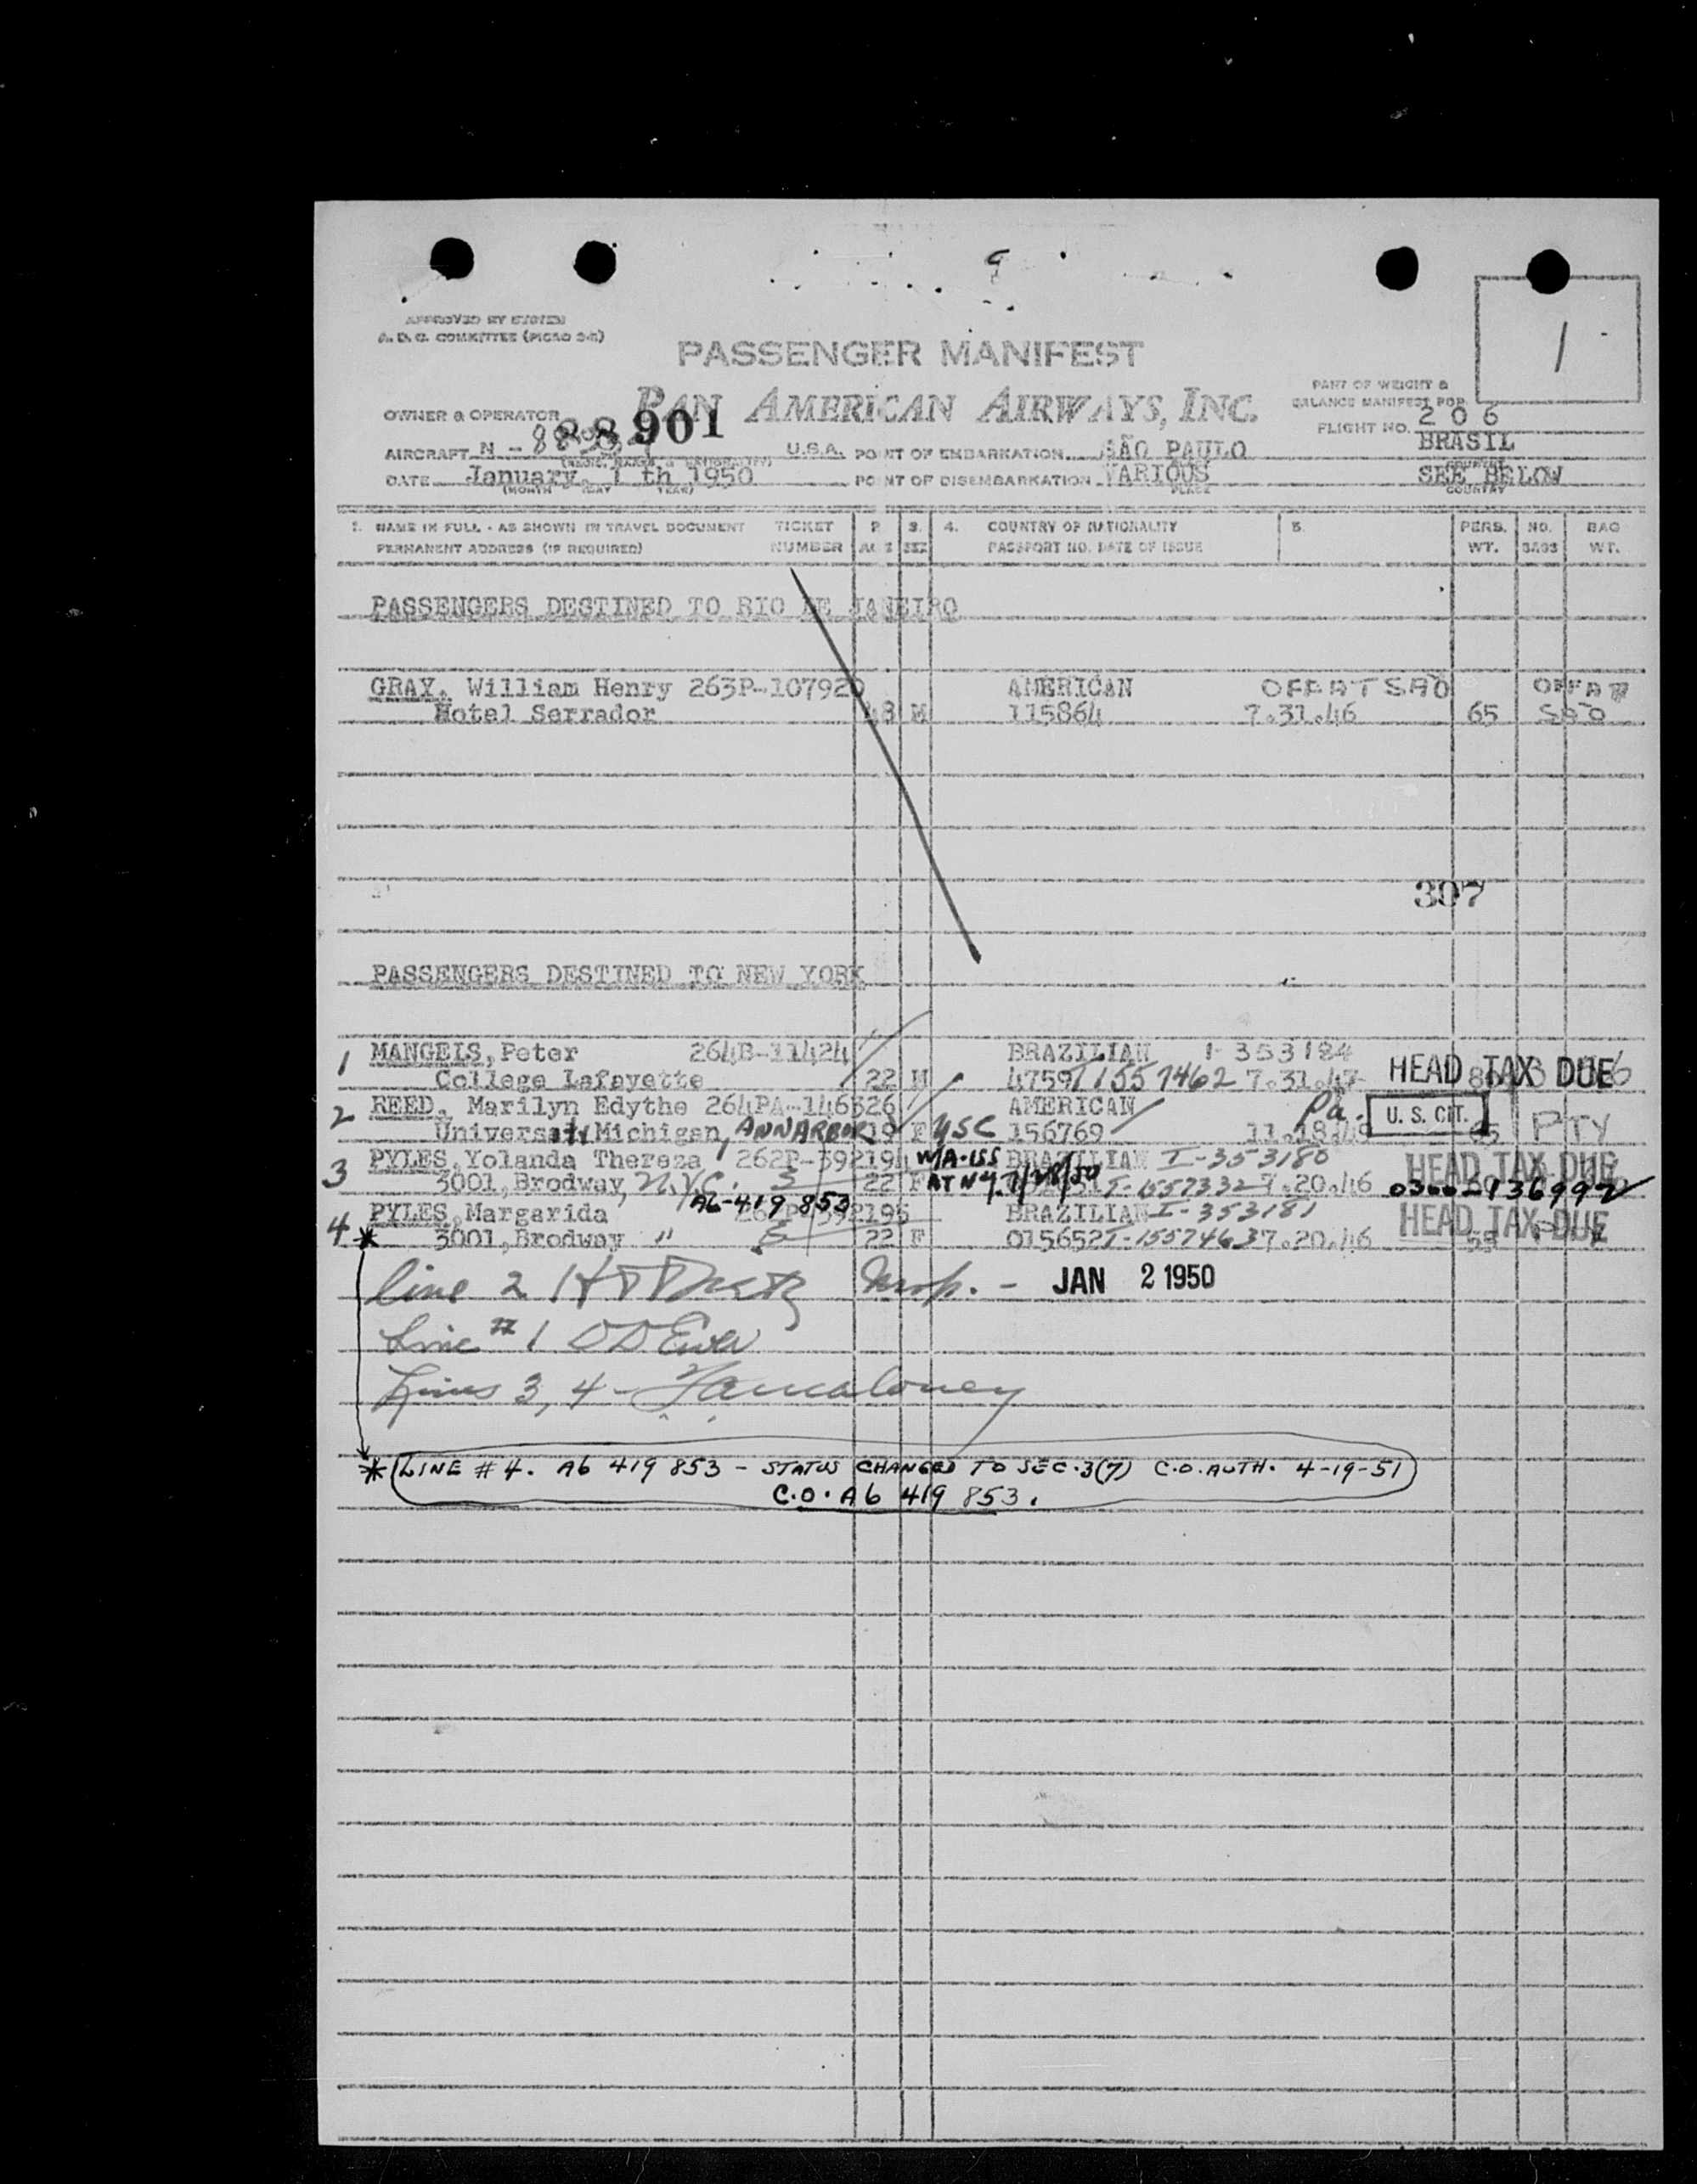 APPROVED BY SYSTEM
A. D. C. COMMITTEE (PICAO 3-2)
1
PASSENGER MANIFEST
PAN AMERICAN AIRWAYS, INC.
OWNER & OPERATOR
PART OF WEIGHT &
BALANCE MANIFEST FOR
FLIGHT NO. 206
AIRCRAFT N - 88901 U.S.A. POINT OF EMBARKATION SÃO PAULO BRASIL
DATE January, 1 th 1950 POINT OF DISEMBARKATION VARIOUS SEE BELOW
(MONTH DAY YEAR) PLACE COUNTRY
1. NAME IN FULL - AS SHOWN IN TRAVEL DOCUMENT TICKET 2. 3. 4. COUNTRY OF NATIONALITY 5. PERS. NO. BAG
PERMANENT ADDRESS (IF REQUIRED) NUMBER AGE SEX PASSPORT NO. DATE OF ISSUE WT. BAGS WT.
PASSENGERS DESTINED TO RIO DE JANEIRO
GRAY, William Henry 263P-107920 AMERICAN OFF AT SAO OFF AT
Hotel Serrador 48 M 115864 7.31.46 65 SAO
307
PASSENGERS DESTINED TO NEW YORK
1 MANGELS, Peter 264B-11424 BRAZILIAN I-353184
College Lafayette 22 M 4759 1557462 7.31.47 HEAD TAX DUE
2 REED, Marilyn Edythe 264PA-146326 AMERICAN Pa.
University Michigan, ANN ARBOR 19 F USC 156769 11.18.49 U. S. CIT. 65 PTY
3 PYLES, Yolanda Thereza 262P-392194 W/A-ISS BRAZILIAN I-353180 HEAD TAX DUE
3001, Brodway, N.Y.C. 22 F AT NY. 7/28/50 T-1557332 7.20.46 0300-936992
A6-419 853
4 PYLES, Margarida 262P-392195 BRAZILIAN I-353181 HEAD TAX DUE
* 3001, Brodway " 22 F 015652 T-1557463 7.20.46 55
line 2 Insp. - JAN 2 1950
Line # 1
Lines 3, 4 -
* LINE # 4. A6 419 853 - STATUS CHANGED TO SEC. 3(7) C.O. AUTH. 4-19-51
C.O. A6 419 853.